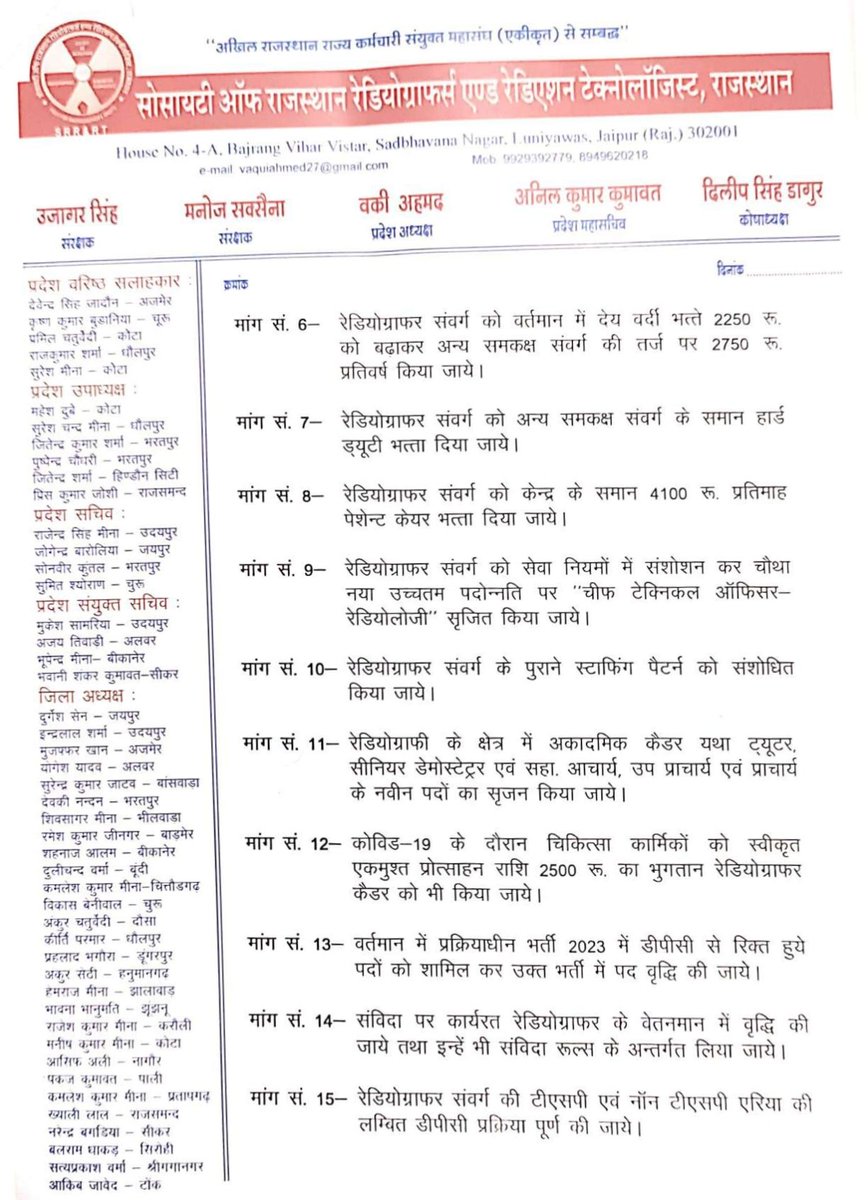 "अखिल राजस्थान राज्य कर्मचारी संयुक्त महासंघ (एकीकृत) से सम्बद्ध"
सोसायटी ऑफ राजस्थान रेडियोग्राफर्स एण्ड रेडिएशन टेक्नोलॉजिस्ट, राजस्थान
S.R.R.& R.T.
House No. 4-A, Bajrang Vihar Vistar, Sadbhavana Nagar, Luniyawas, Jaipur (Raj.) 302001
e-mail vaquiahmed27@gmail.com Mob 9929392779, 8949620218
उजागर सिंह मनोज सक्सैना वकी अहमद अनिल कुमार कुमावत दिलीप सिंह डागुर
संरक्षक संरक्षक प्रदेश अध्यक्ष प्रदेश महासचिव कोषाध्यक्ष
प्रदेश वरिष्ठ सलाहकार :
देवेन्द सिंह जादौन – अजमेर
कृष्ण कुमार बुडानिया – चूरू
प्रमिल चतुर्वेदी – कोटा
राजकुमार शर्मा – धौलपुर
सुरेश मीना – कोटा
प्रदेश उपाध्यक्ष :
महेश दुबे – कोटा
सुरेश चन्द मीना – धौलपुर
जितेन्द्र कुमार शर्मा – भरतपुर
पुष्पेन्द्र चौधरी – भरतपुर
जितेन्द्र शर्मा – हिण्डौन सिटी
प्रिंस कुमार जोशी – राजसमन्द
प्रदेश सचिव :
राजेन्द्र सिंह मीना – उदयपुर
जोगेन्द्र बारोलिया – जयपुर
सोनवीर कुंतल – भरतपुर
सुमित श्योराण – चुरू
प्रदेश संयुक्त सचिव :
मुकेश सामरिया – उदयपुर
अजय तिवाडी – अलवर
भूपेन्द्र मीना– बीकानेर
भवानी शंकर कुमावत–सीकर
जिला अध्यक्ष :
दुर्गेश सेन – जयपुर
इन्द्रलाल शर्मा – उदयपुर
मुजफ्फर खान – अजमेर
योगेश यादव – अलवर
सुरेन्द्र कुमार जाटव – बांसवाडा
देवकी नन्दन – भरतपुर
शिवसागर मीना – भीलवाडा
रमेश कुमार जीनगर – बाड़मेर
शहनाज आलम – बीकानेर
दुलीचन्द वर्मा – बूंदी
कमलेश कुमार मीना–चित्तौडगढ़
विकास बेनीवाल – चुरू
अंकुर चतुर्वेदी – दौसा
कीर्ति परमार – धौलपुर
प्रहलाद भगौरा – डूंगरपुर
अंकुर सेठी – हनुमानगढ
हेमराज मीना – झालावाड़
भावना भानुमति – झूंझनू
राजेश कुमार मीना – करौली
मनीष कुमार मीना – कोटा
आसिफ अली – नागौर
पंकज कुमावत – पाली
कमलेश कुमार मीना – प्रतापगढ़
ख्याली लाल – राजसमन्द
नरेन्द्र बगडिया – सीकर
बलराम धाकड़ – सिरोही
सत्यप्रकाश वर्मा – श्रीगंगानगर
आकिब जावेद – टोंक
क्रमांक दिनांक ........................
मांग सं. 6– रेडियोग्राफर संवर्ग को वर्तमान में देय वर्दी भत्ते 2250 रू.
को बढाकर अन्य समकक्ष संवर्ग की तर्ज पर 2750 रू.
प्रतिवर्ष किया जाये।
मांग सं. 7– रेडियोग्राफर संवर्ग को अन्य समकक्ष संवर्ग के समान हार्ड
ड्यूटी भत्ता दिया जाये।
मांग सं. 8– रेडियोग्राफर संवर्ग को केन्द्र के समान 4100 रू. प्रतिमाह
पेशेन्ट केयर भत्ता दिया जाये।
मांग सं. 9– रेडियोग्राफर संवर्ग को सेवा नियमों में संशोशन कर चौथा
नया उच्चतम पदोन्नति पर "चीफ टेक्निकल ऑफिसर–
रेडियोलोजी" सृजित किया जाये।
मांग सं. 10– रेडियोग्राफर संवर्ग के पुराने स्टाफिंग पैटर्न को संशोधित
किया जाये।
मांग सं. 11– रेडियोग्राफी के क्षेत्र में अकादमिक कैडर यथा ट्यूटर,
सीनियर डेमोस्टेट्रर एवं सहा. आचार्य, उप प्राचार्य एवं प्राचार्य
के नवीन पदों का सृजन किया जाये।
मांग सं. 12– कोविड–19 के दौरान चिकित्सा कार्मिकों को स्वीकृत
एकमुश्त प्रोत्साहन राशि 2500 रू. का भुगतान रेडियोग्राफर
कैडर को भी किया जाये।
मांग सं. 13– वर्तमान में प्रक्रियाधीन भर्ती 2023 में डीपीसी से रिक्त हुये
पदों को शामिल कर उक्त भर्ती में पद वृद्धि की जाये।
मांग सं. 14– संविदा पर कार्यरत रेडियोग्राफर के वेतनमान में वृद्धि की
जाये तथा इन्हें भी संविदा रूल्स के अन्तर्गत लिया जाये।
मांग सं. 15– रेडियोग्राफर संवर्ग की टीएसपी एवं नॉन टीएसपी एरिया की
लम्बित डीपीसी प्रक्रिया पूर्ण की जाये।